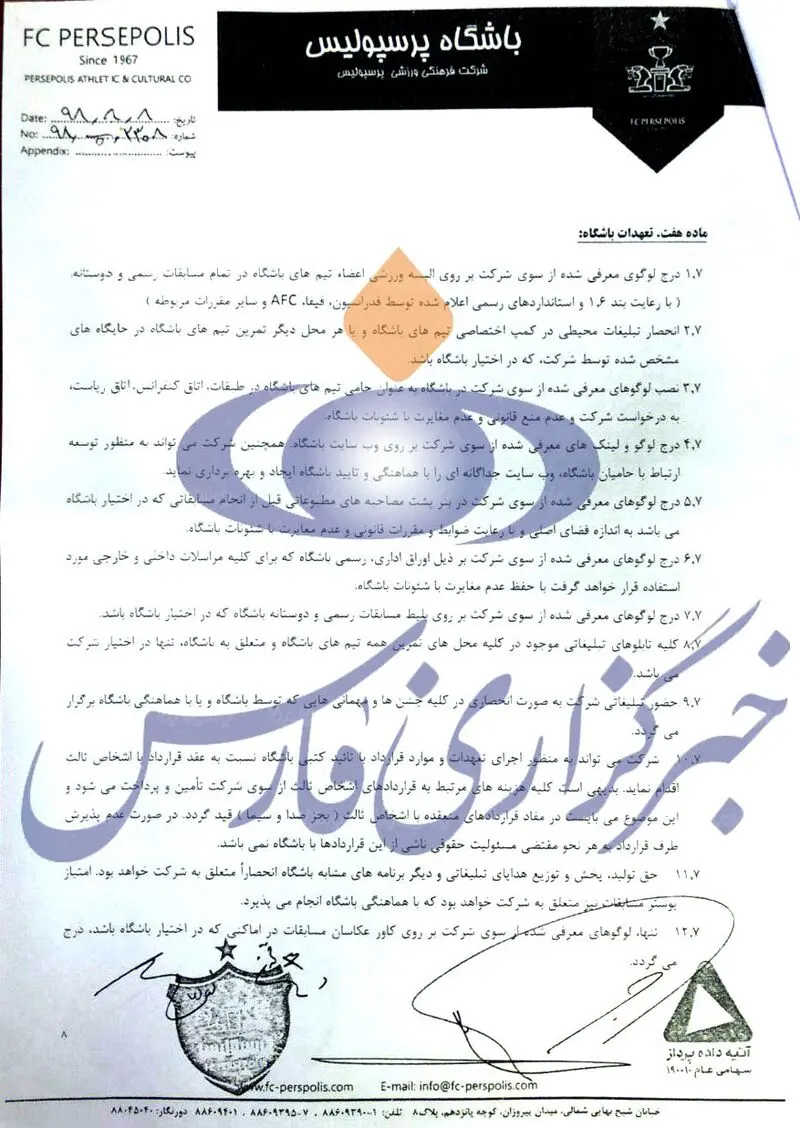 FC PERSEPOLIS
Since 1967
PERSEPOLIS ATHLETIC & CULTURAL CO
باشگاه پرسپولیس
شرکت فرهنگی ورزشی پرسپولیس
FC PERSEPOLIS
Date: ۹۸,۸,۸ تاریخ:
No: شماره:
Appendix: پیوست:
ماده هفت. تعهدات باشگاه:
۱,۷ درج لوگوی معرفی شده از سوی شرکت بر روی البسه ورزشی اعضاء تیم های باشگاه در تمام مسابقات رسمی و دوستانه.
( با رعایت بند ۱,۶ و استانداردهای رسمی اعلام شده توسط فدراسیون، فیفا، AFC و سایر مقررات مربوطه )
۲,۷ انحصار تبلیغات محیطی در کمپ اختصاصی تیم های باشگاه و یا هر محل دیگر تمرین تیم های باشگاه در جایگاه های
مشخص شده توسط شرکت، که در اختیار باشگاه باشد.
۳,۷ نصب لوگوهای معرفی شده از سوی شرکت در باشگاه به عنوان حامی تیم های باشگاه در طبقات، اتاق کنفرانس، اتاق ریاست،
به درخواست شرکت و عدم منع قانونی و عدم مغایرت با شئونات باشگاه.
۴,۷ درج لوگو و لینک های معرفی شده از سوی شرکت بر روی وب سایت باشگاه. همچنین شرکت می تواند به منظور توسعه
ارتباط با حامیان باشگاه، وب سایت جداگانه ای را با هماهنگی و تایید باشگاه ایجاد و بهره برداری نماید.
۵,۷ درج لوگوهای معرفی شده از سوی شرکت در بنر پشت مصاحبه های مطبوعاتی قبل از انجام مسابقاتی که در اختیار باشگاه
می باشد به اندازه فضای اصلی و با رعایت ضوابط و مقررات قانونی و عدم مغایرت با شئونات باشگاه.
۶,۷ درج لوگوهای معرفی شده از سوی شرکت بر ذیل اوراق اداری، رسمی باشگاه که برای کلیه مراسلات داخلی و خارجی مورد
استفاده قرار خواهد گرفت با حفظ عدم مغایرت با شئونات باشگاه.
۷,۷ درج لوگوهای معرفی شده از سوی شرکت بر روی بلیط مسابقات رسمی و دوستانه باشگاه که در اختیار باشگاه باشد.
۸,۷ کلیه تابلوهای تبلیغاتی موجود در کلیه محل های تمرین همه تیم های باشگاه و متعلق به باشگاه، تنها در اختیار شرکت
می باشد.
۹,۷ حضور تبلیغاتی شرکت به صورت انحصاری در کلیه جشن ها و مهمانی هایی که توسط باشگاه و یا با هماهنگی باشگاه برگزار
می گردد.
۱۰,۷ شرکت می تواند به منظور اجرای تعهدات و موارد قرارداد با تائید کتبی باشگاه نسبت به عقد قرارداد با اشخاص ثالث
اقدام نماید. بدیهی است کلیه هزینه های مرتبط به قراردادهای اشخاص ثالث از سوی شرکت تأمین و پرداخت می شود و
این موضوع می بایست در مفاد قراردادهای منعقده با اشخاص ثالث ( بجز صدا و سیما ) قید گردد. در صورت عدم پذیرش
طرف قرارداد به هر نحو مقتضی مسئولیت حقوقی ناشی از این قراردادها با باشگاه نمی باشد.
۱۱,۷ حق تولید، پخش و توزیع هدایای تبلیغاتی و دیگر برنامه های مشابه باشگاه انحصاراً متعلق به شرکت خواهد بود. امتیاز
پوستر مسابقات نیز متعلق به شرکت خواهد بود که با هماهنگی باشگاه انجام می پذیرد.
۱۲,۷ تنها، لوگوهای معرفی شده از سوی شرکت بر روی کاور عکاسان مسابقات در اماکنی که در اختیار باشگاه باشد، درج
می گردد.
خبرگزاری فارس
آتیه داده پرداز
سهامی عام ۱۹۰۰۱۰
۸
www.fc-perspolis.com E-mail: info@fc-perspolis.com
خیابان شیخ بهایی شمالی، میدان پیروزان، کوچه پانزدهم، پلاک ۸ تلفن: ۱-۸۸۶۰۹۳۹۰ ، ۷-۸۸۶۰۹۳۹۵ ، ۸۸۶۰۹۴۰۱ دورنگار: ۸۸۰۴۵۰۴۰